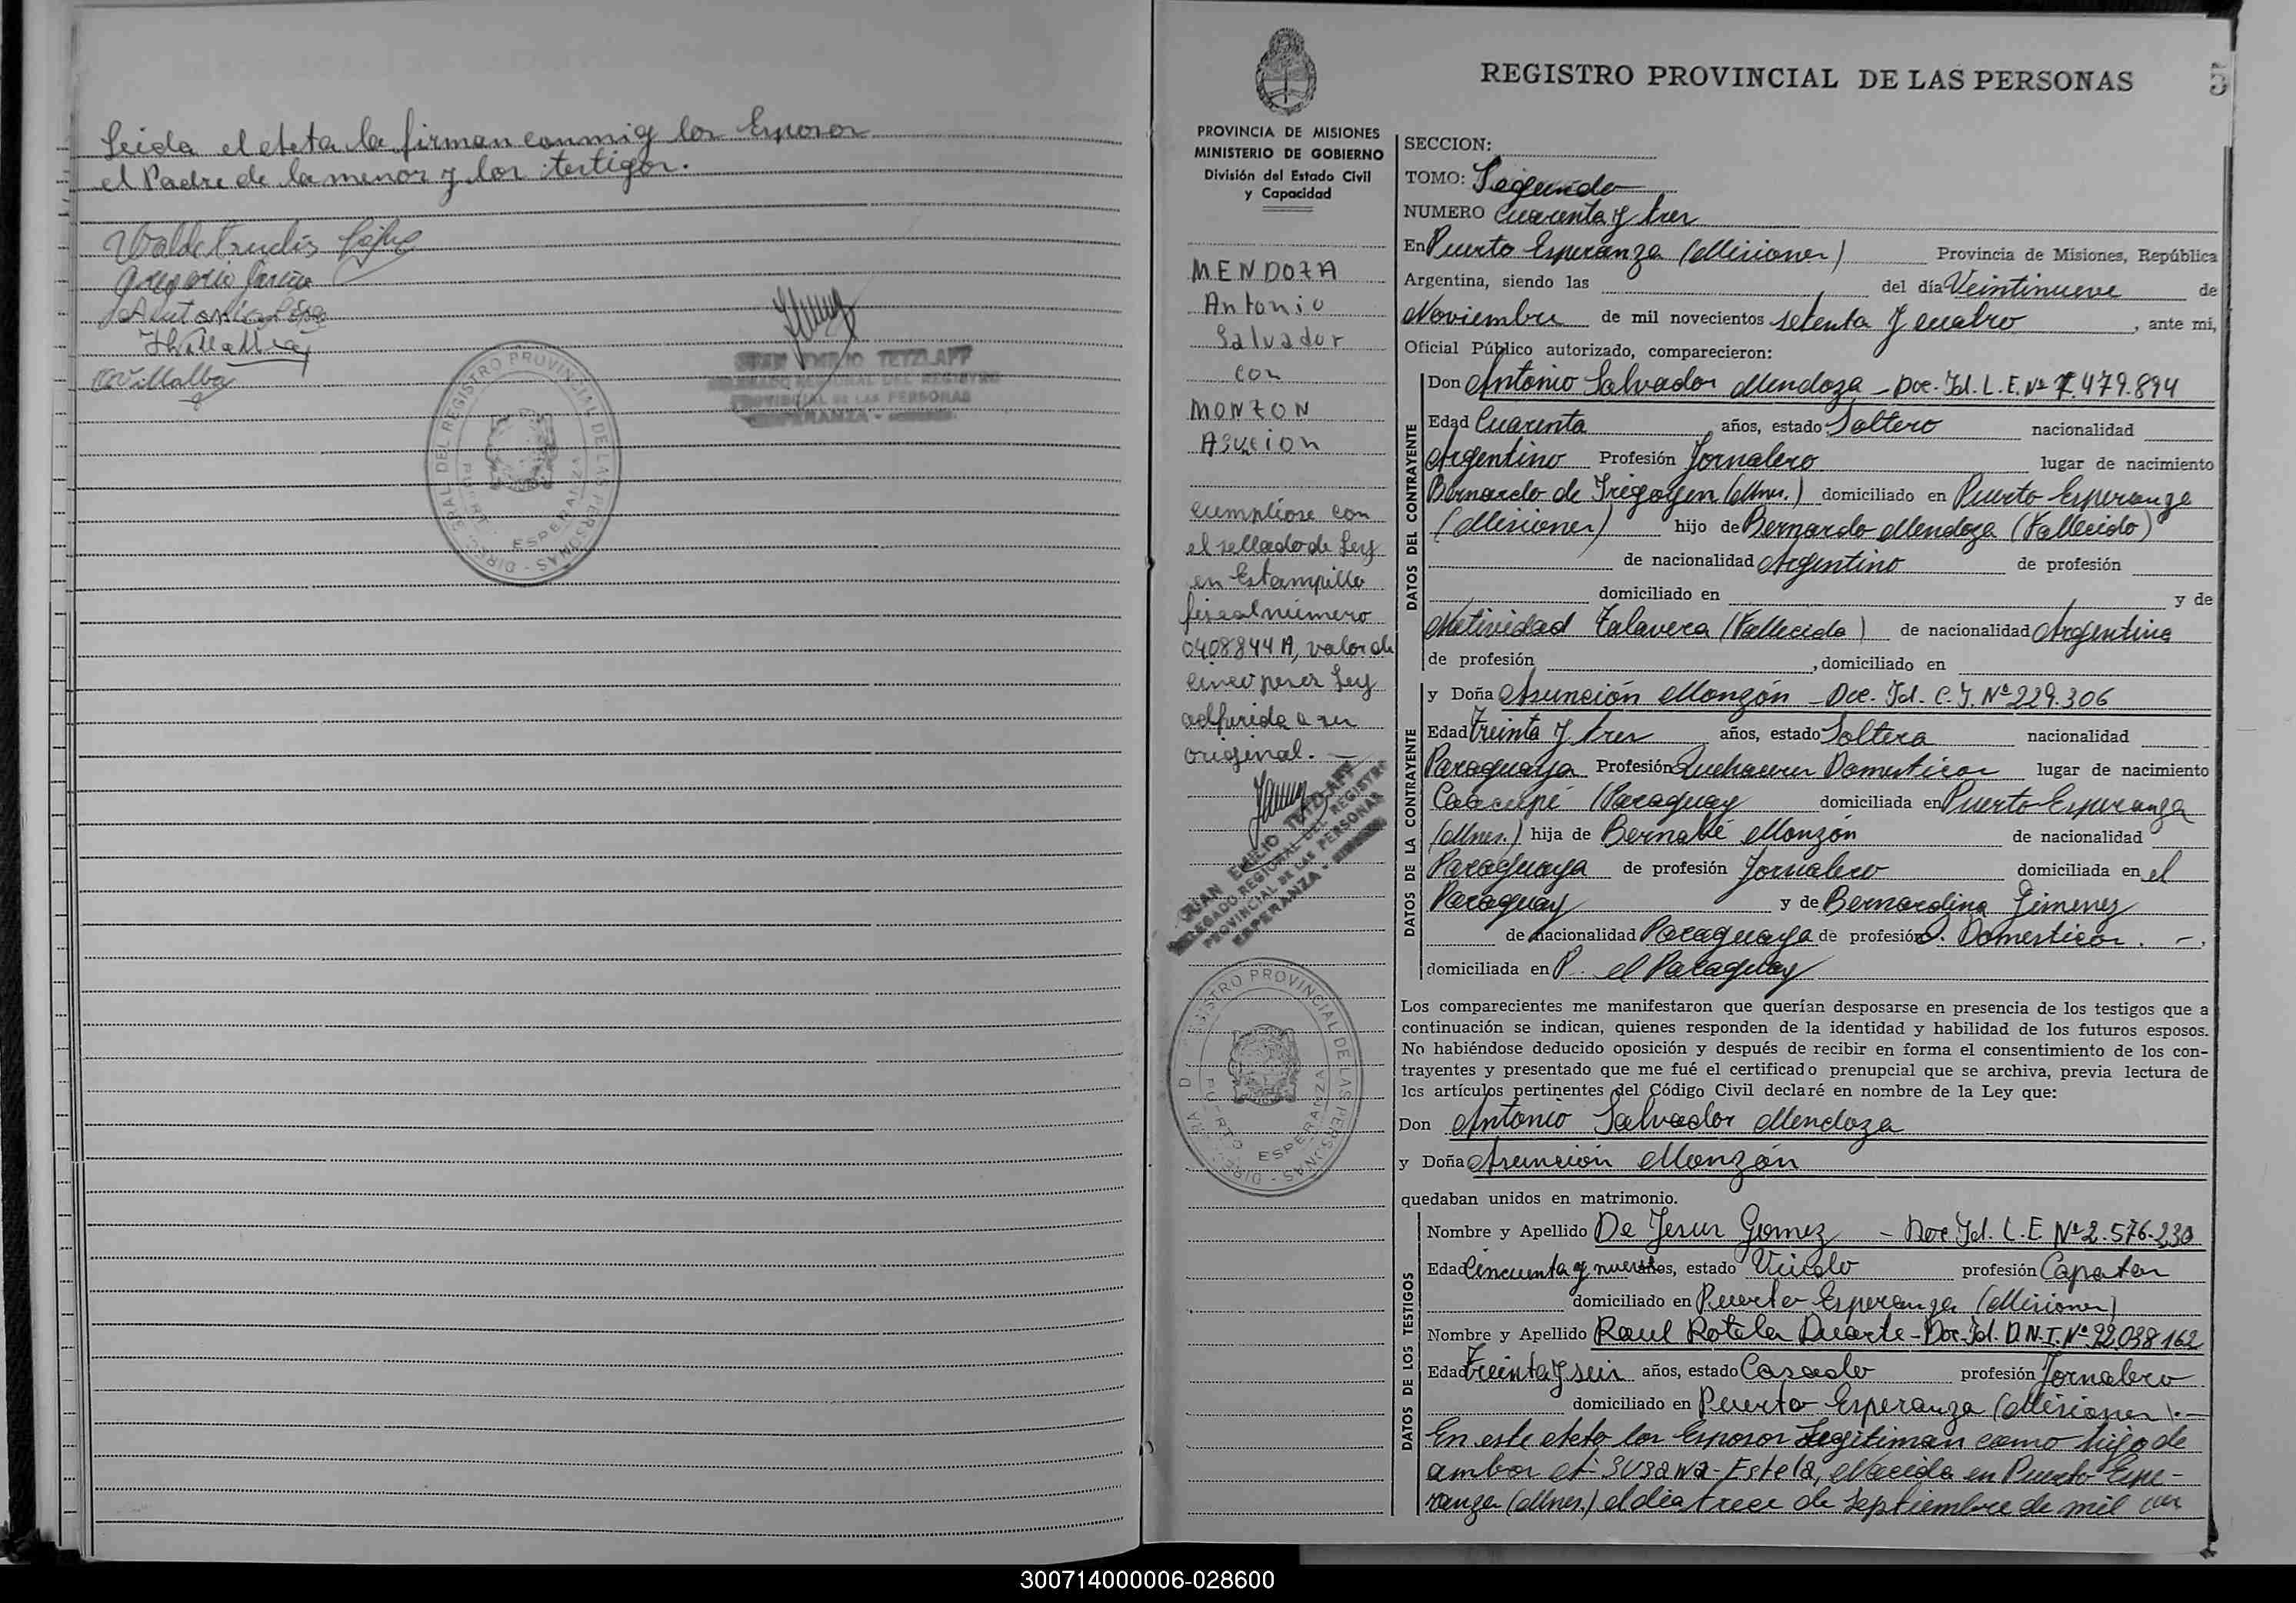 Leida el Acta la firman conmig los Esposos
el Padre de la menor y los testigos.
JUAN EMILIO TETZLAFF
DELEGADO REGIONAL DEL REGISTRO
PROVINCIAL DE LAS PERSONAS
ESPERANZA -
Villalba
REGISTRO PROVINCIAL DE LAS PERSONAS
PUERTO ESPERANZA
REGISTRO PROVINCIAL DE LAS PERSONAS
5
PROVINCIA DE MISIONES
MINISTERIO DE GOBIERNO
División del Estado Civil
y Capacidad
MENDOZA
Antonio
Salvador
con
MONZON
Asucion
cumpliose con
el sellado de Ley
en Estampilla
fiscal número
0408844 A, valor de
cinco pesos Ley
adherida a su
original. -
JUAN EMILIO TETZLAFF
DELEGADO REGIONAL DEL REGISTRO
PROVINCIAL DE LAS PERSONAS
ESPERANZA -
REGISTRO PROVINCIAL DE LAS PERSONAS
PUERTO ESPERANZA
SECCION:
TOMO: Segundo
NUMERO Cuarenta y tres
En Puerto Esperanza (Misiones) Provincia de Misiones, República
Argentina, siendo las del día Veintinueve de
Noviembre de mil novecientos setenta y cuatro, ante mi,
Oficial Público autorizado, comparecieron:
DATOS DEL CONTRAYENTE
Don Antonio Salvador Mendoza - Doc. Id. L.E. Nº 7.479.894
Edad Cuarenta años, estado Soltero nacionalidad
Argentino Profesión Jornalero lugar de nacimiento
Bernardo de Irigoyen (Mnes.) domiciliado en Puerto Esperanza
(Misiones) hijo de Bernardo Mendoza (Fallecido)
de nacionalidad Argentino de profesión
domiciliado en y de
Natividad Talavera (Fallecida) de nacionalidad Argentina
de profesión , domiciliado en
DATOS DE LA CONTRAYENTE
y Doña Asunción Monzón - Doc. Id. C.I. Nº 229.306
Edad Treinta y tres años, estado Soltera nacionalidad
Paraguaya Profesión Quehaceres Domesticos lugar de nacimiento
Caacupé (Paraguay domiciliada en Puerto Esperanza
(Mnes.) hija de Bernabé Monzón de nacionalidad
Paraguaya de profesión Jornalero domiciliada en el
Paraguay y de Bernardina Gimenez
de nacionalidad Paraguaya de profesión Q. Domesticos. -.
domiciliada en P. el Paraguay
Los comparecientes me manifestaron que querían desposarse en presencia de los testigos que a
continuación se indican, quienes responden de la identidad y habilidad de los futuros esposos.
No habiéndose deducido oposición y después de recibir en forma el consentimiento de los con-
trayentes y presentado que me fué el certificado prenupcial que se archiva, previa lectura de
los artículos pertinentes del Código Civil declaré en nombre de la Ley que:
Don Antonio Salvador Mendoza
y Doña Asuncion Monzón
quedaban unidos en matrimonio.
DATOS DE LOS TESTIGOS
Nombre y Apellido De Jesus Gomez - Doc. Id. L.E Nº 2.576.230
Edad Cincuenta y nueve años, estado Viudo profesión Capataz
domiciliado en Puerto Esperanza (Misiones)
Nombre y Apellido Raul Rotela Duarte - Doc. Id. D.N.I. Nº 92.038.162
Edad Treinta y seis años, estado Casado profesión Jornalero
domiciliado en Puerto Esperanza (Misiones). -
En este Acto los Esposos Legitiman como hija de
ambos A- SUSANA - Estela, Nacida en Puerto Espe-
ranza (Mnes.) el dia trece de septiembre de mil
300714000006-028600